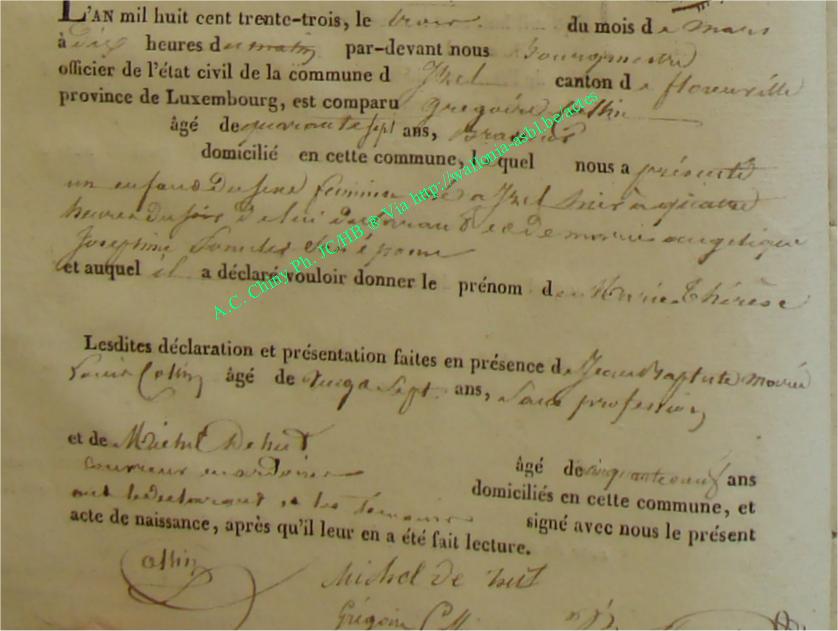 L'AN mil huit cent trente-trois, le trois du mois de mars
à dix heures du matin par-devant nous Bourgmestre
officier de l'état civil de la commune d Izel canton de florenville
province de Luxembourg, est comparu grégoire Collin
âgé de quarante sept ans, Brasseur
domicilié en cette commune, lequel nous a présenté
un enfant du sexe féminin né a Izel hier a quatre
heures du soir de lui déclarant & de marie angelique
Josephine son épouse
et auquel il a déclaré vouloir donner le prénom de Marie Thérèse
Lesdites déclaration et présentation faites en présence de Jean Baptiste marie
Louis Collin âgé de vingt Sept ans, Sans profession
et de Michel Dehut
couvreur en ardoises âgé de cinquante neuf ans
ont le déclarant et les témoins domiciliés en cette commune, et
signé avec nous le présent
acte de naissance, après qu'il leur en a été fait lecture.
Collin
Michel de hut
Grégoire Coll
A.C. Chiny Ph. JC/HB ® Via http://wallonia-asbl.be/actes